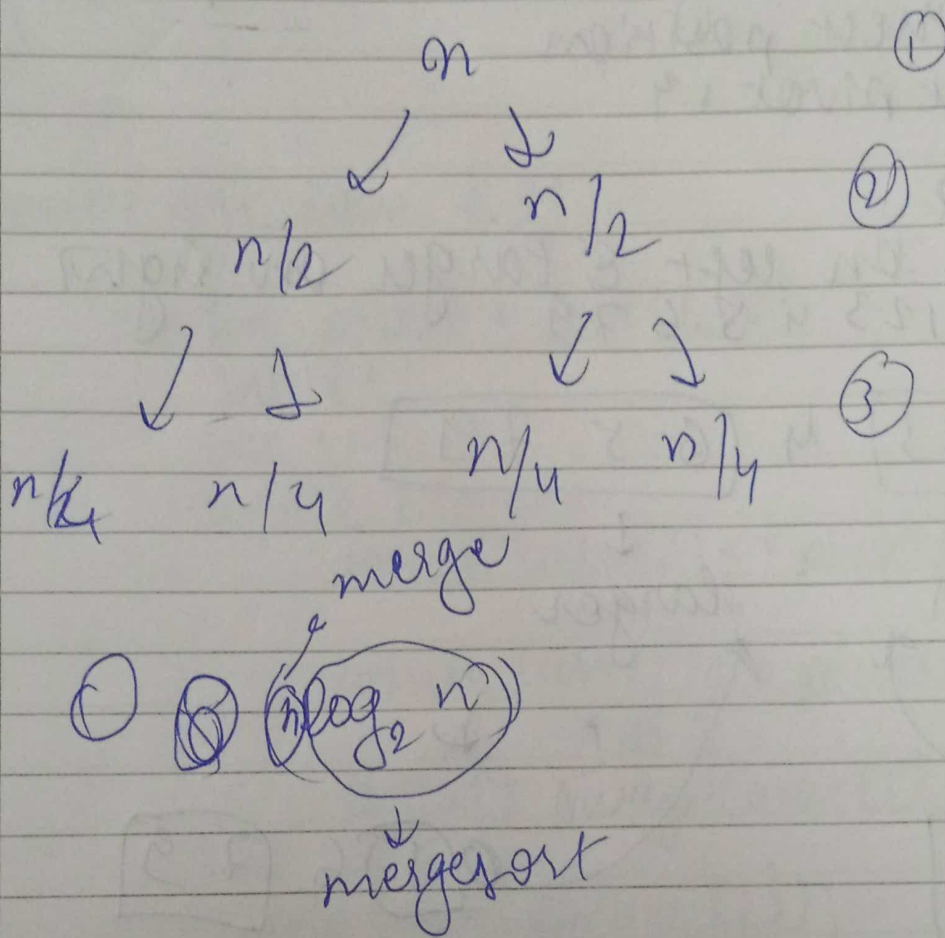 n ①
n/2 n/2 ②
n/4 n/4 n/4 n/4 ③
merge
(n log₂ n)
mergesort